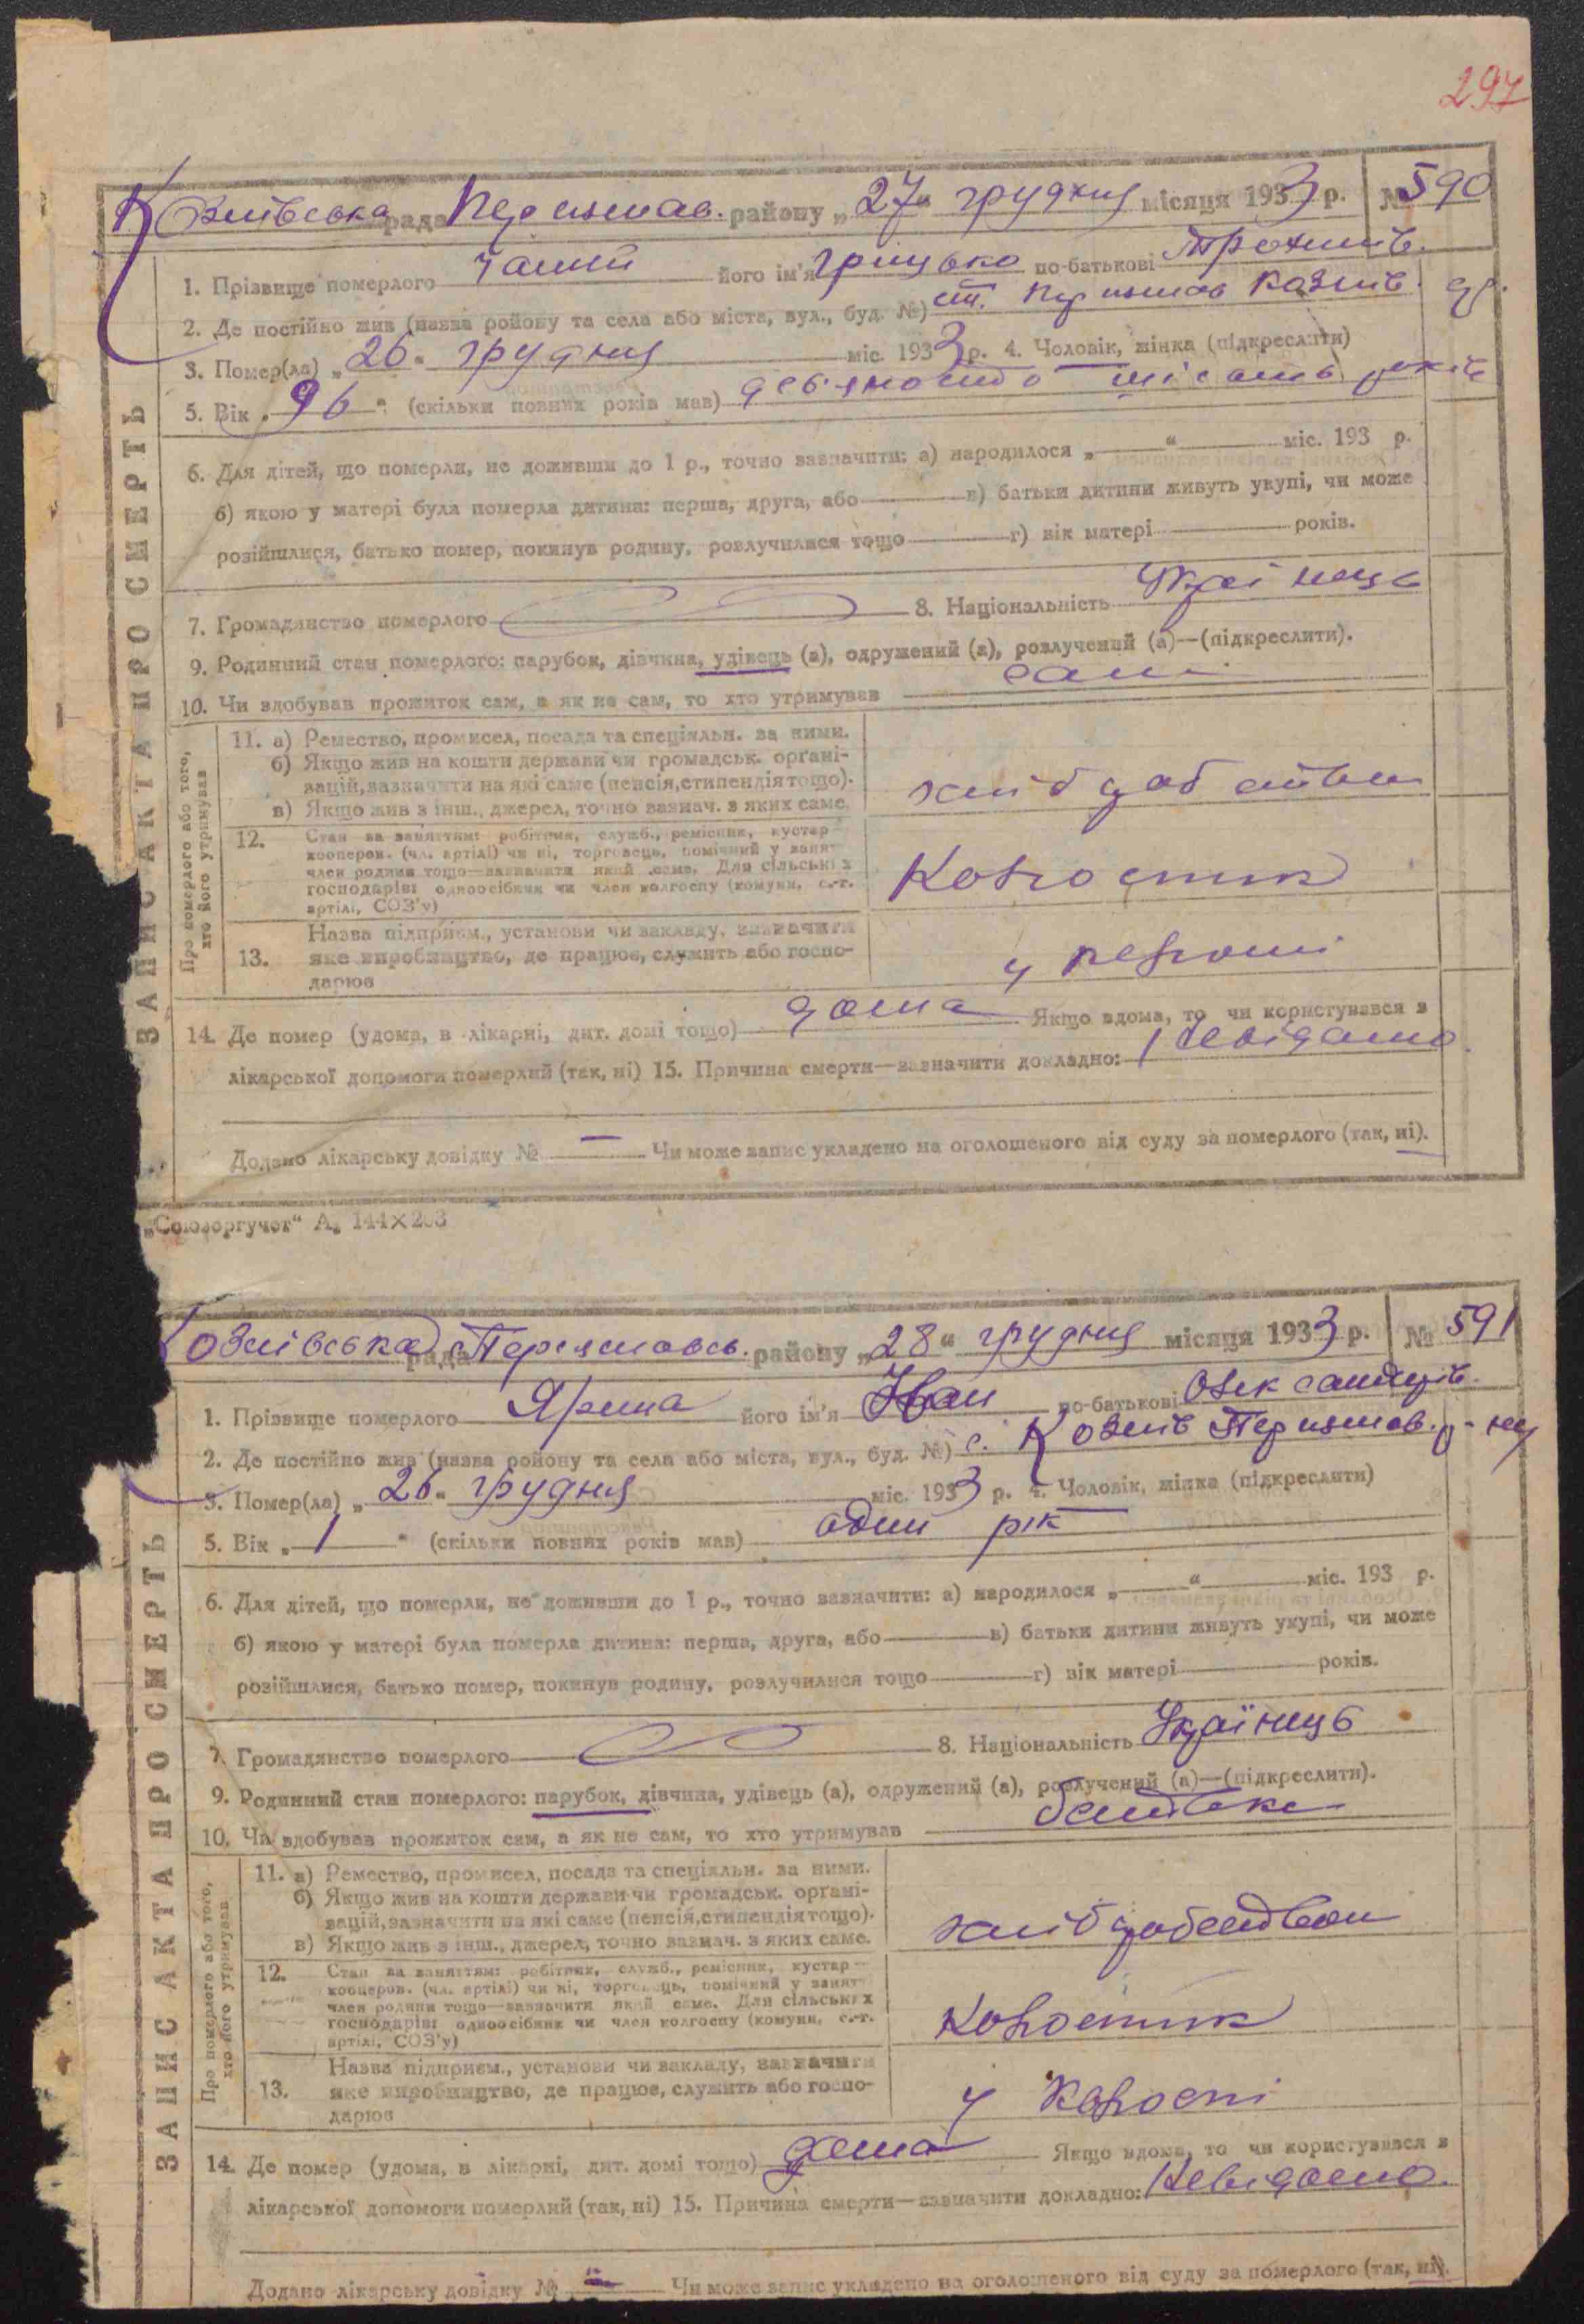 297
Козлівська рада Переяслав. району „27“ грудня місяця 1933 р. № 590
1. Прізвище померлого його ім'я Грицько по-батькові Трохимів.
2. Де постійно жив (назва ройону та села або міста, вул., буд. №) Переяслав Козлів.
3. Помер(ла) „26“ грудня міс. 1933 р. 4. Чоловік, жінка (підкреслити)
5. Вік „96“ (скільки повних років мав) дев'яносто шість років
6. Для дітей, що померли, не доживши до 1 р., точно зазначити: а) народилося „ “ міс. 193 р.
б) якою у матері була померла дитина: перша, друга, або в) батьки дитини живуть укупі, чи може
розійшлися, батько помер, покинув родину, розлучилися тощо г) вік матері років.
7. Громадянство померлого 8. Національність Українець
9. Родинний стан померлого: парубок, дівчина, удівець (а), одружений (а), розлучений (а)—(підкреслити).
10. Чи здобував прожиток сам, а як не сам, то хто утримував сам
ЗАПИС АКТА ПРО СМЕРТЬ
Про померлого або того, хто його утримував
11. а) Ремество, промисел, посада та спеціяльн. за ними.
б) Якщо жив на кошти держави чи громадськ. орґані-
зацій, зазначити на які саме (пенсія, стипендія тощо).
в) Якщо жив з інш., джерел, точно зазнач. з яких саме.
хлібодобством
12. Стан за заняттям: робітник, служб., ремісник, кустар
кооперов. (чл. артілі) чи ні, торговець, помічний у занят
член родини тощо—зазначити який саме. Для сільських
господарів: одноосібник чи член колгоспу (комуни, с.-г.
артілі, СОЗ'у)
Колгоспник
13. Назва підприєм., установи чи закладу, зазначити
яке виробництво, де працює, служить або госпо-
дарює
у
14. Де помер (удома, в лікарні, дит. домі тощо) дома Якщо вдома, то чи користувався з
лікарської допомоги померлий (так, ні) 15. Причина смерти—зазначити докладно: Невідомо.
Додано лікарську довідку № — Чи може запис укладено на оголошеного від суду за померлого (так, ні).
„Союзоргучет“ А₆ 144×203
Козлівська рада Переяславсь. району „28“ грудня місяця 1933 р. № 591
1. Прізвище померлого Ярема його ім'я Іван по-батькові Олександрів.
2. Де постійно жив (назва ройону та села або міста, вул., буд. №) с. Козлів Переяслав. р-ну
3. Помер(ла) „26“ грудня міс. 1933 р. 4. Чоловік, жінка (підкреслити)
5. Вік „1“ (скільки повних років мав) один рік
6. Для дітей, що померли, не доживши до 1 р., точно зазначити: а) народилося „ “ міс. 193 р.
б) якою у матері була померла дитина: перша, друга, або в) батьки дитини живуть укупі, чи може
розійшлися, батько помер, покинув родину, розлучилися тощо г) вік матері років.
7. Громадянство померлого 8. Національність Українець
9. Родинний стан померлого: парубок, дівчина, удівець (а), одружений (а), розлучений (а)—(підкреслити).
10. Чи здобував прожиток сам, а як не сам, то хто утримував батьки
ЗАПИС АКТА ПРО СМЕРТЬ
Про померлого або того, хто його утримував
11. а) Ремество, промисел, посада та спеціяльн. за ними.
б) Якщо жив на кошти держави чи громадськ. орґані-
зацій, зазначити на які саме (пенсія, стипендія тощо).
в) Якщо жив з інш., джерел, точно зазнач. з яких саме.
хлібодобством
12. Стан за заняттям: робітник, служб., ремісник, кустар
кооперов. (чл. артілі) чи ні, торговець, помічний у занят
член родини тощо—зазначити який саме. Для сільських
господарів: одноосібник чи член колгоспу (комуни, с.-г.
артілі, СОЗ'у)
Колгоспник
13. Назва підприєм., установи чи закладу, зазначити
яке виробництво, де працює, служить або госпо-
дарює
у колгоспі
14. Де помер (удома, в лікарні, дит. домі тощо) дома Якщо вдома, то чи користувався з
лікарської допомоги померлий (так, ні) 15. Причина смерти—зазначити докладно: Невідомо.
Додано лікарську довідку № — Чи може запис укладено на оголошеного від суду за померлого (так, ні).